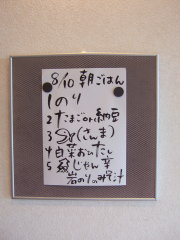 8/10 朝ごはん
1 のり
2 たまごor納豆
3 (さんま)
4 白菜おひたし
5 じゃん辛
岩のりのみそ汁